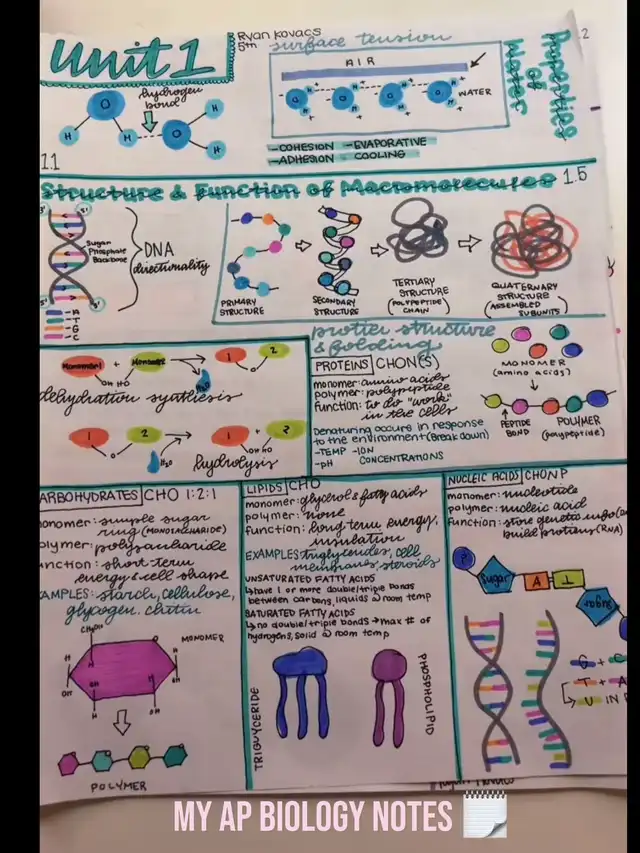 Unit 1
Ryan Kovacs
5th
surface tension
AIR
WATER
Properties of Water
hydrogen bond
O
H
H
O
H
H
-COHESION -EVAPORATIVE
-ADHESION COOLING
1.1
Structure & Function of Macromolecules 1.5
Sugar Phosphate Backbone
DNA directionality
-A
-T
-G
-C
PRIMARY STRUCTURE
SECONDARY STRUCTURE
TERTIARY STRUCTURE
(POLYPEPTIDE CHAIN)
QUATERNARY STRUCTURE
(ASSEMBLED SUBUNITS)
Monomer1 + Monomer2
OH HO
H₂O
1 O 2
dehydration synthesis
1 O 2
H₂O
1 + 2
OH HO
hydrolysis
structure
& folding
PROTEINS CHON(S)
monomer: amino acids
polymer: polypeptide
function: to do "work"
in the cells
Denaturing occurs in response
to the environment (Break down)
-TEMP -ION
-pH CONCENTRATIONS
MONOMER
(amino acids)
PEPTIDE BOND
POLYMER
(polypeptide)
ARBOHYDRATES CHO 1:2:1
onomer: simple sugar
ring (MONOSACCHARIDE)
olymer: polysaccharide
unction: short-term
energy & cell shape
AMPLES: starch, cellulose,
glycogen, chitin
MONOMER
POLYMER
LIPIDS CHO
monomer: glycerol & fatty acids
polymer: none
function: long-term energy,
insulation
EXAMPLES: triglycerides, cell
membranes, steroids
UNSATURATED FATTY ACIDS
↳have 1 or more double/triple bonds
between carbons, liquids @ room temp
SATURATED FATTY ACIDS
↳no double/triple bonds → max # of
hydrogens, solid @ room temp
TRIGLYCERIDE
PHOSPHOLIPID
NUCLEIC ACIDS CHONP
monomer: nucleotide
polymer: nucleic acid
function: store genetic info
build proteins (RNA)
Sugar
A
T
Sugar
G + C
T A
U IN
MY AP BIOLOGY NOTES